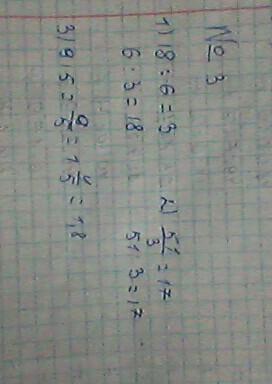 № 3
1) 18 : 6 = 3
6 : 3 = 18
2) 51/3 = 17
51 3 = 17
3) 9 5 = 9/5 = 1 4/5 = 1,8